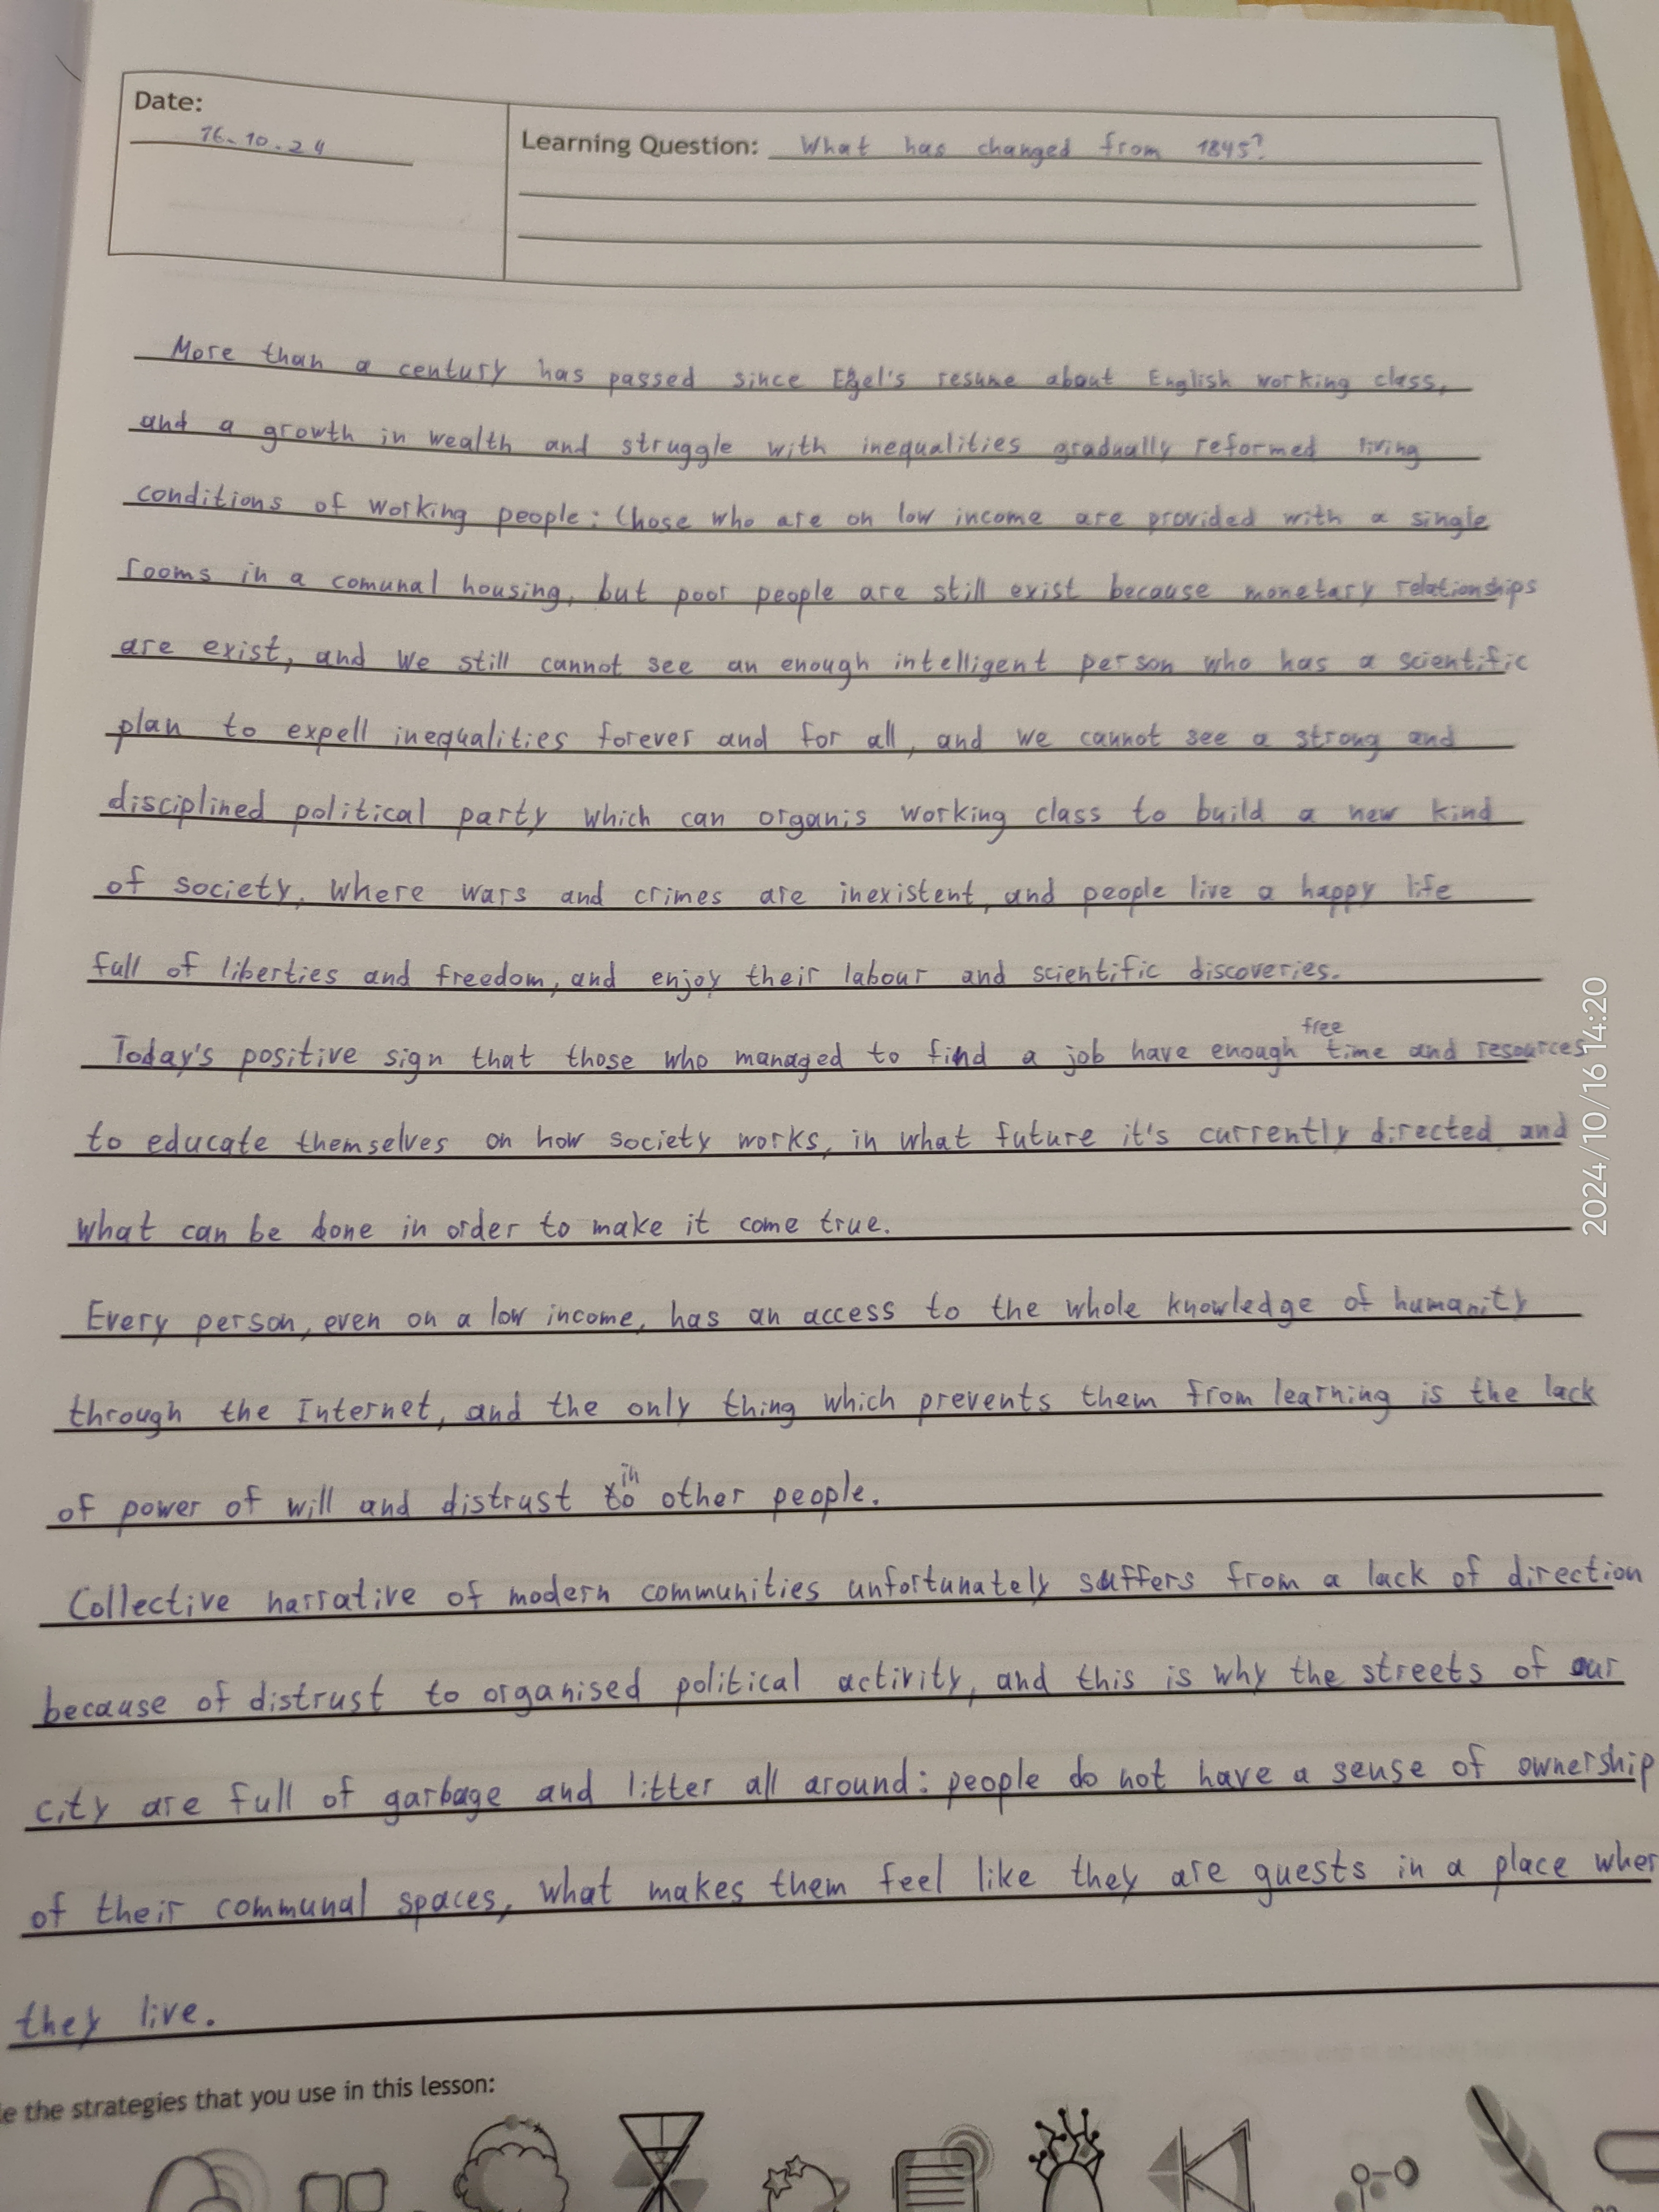 Date:
16.10.24
Learning Question: What has changed from 1845?
More than a century has passed since Egel's resume about English working class,
and a growth in wealth and struggle with inequalities gradually reformed living
conditions of working people: those who are on low income are provided with a single
rooms in a comunal housing, but poor people are still exist because monetary relationships
are exist, and we still cannot see an enough intelligent person who has a scientific
plan to expell inequalities forever and for all, and we cannot see a strong and
disciplined political party which can organis working class to build a new kind
of society, where wars and crimes are inexistent, and people live a happy life
full of liberties and freedom, and enjoy their labour and scientific discoveries.
Today's positive sign that those who managed to find a job have enough free time and resources
to educate themselves on how society works, in what future it's currently directed and
what can be done in order to make it come true.
Every person, even on a low income, has an access to the whole knowledge of humanity
through the Internet, and the only thing which prevents them from learning is the lack
of power of will and distrust in other people.
Collective narrative of modern communities unfortunately suffers from a lack of direction
because of distrust to organised political activity, and this is why the streets of our
city are full of garbage and litter all around: people do not have a sense of ownership
of their communal spaces, what makes them feel like they are guests in a place wher
they live.
le the strategies that you use in this lesson:
2024/10/16 14:20